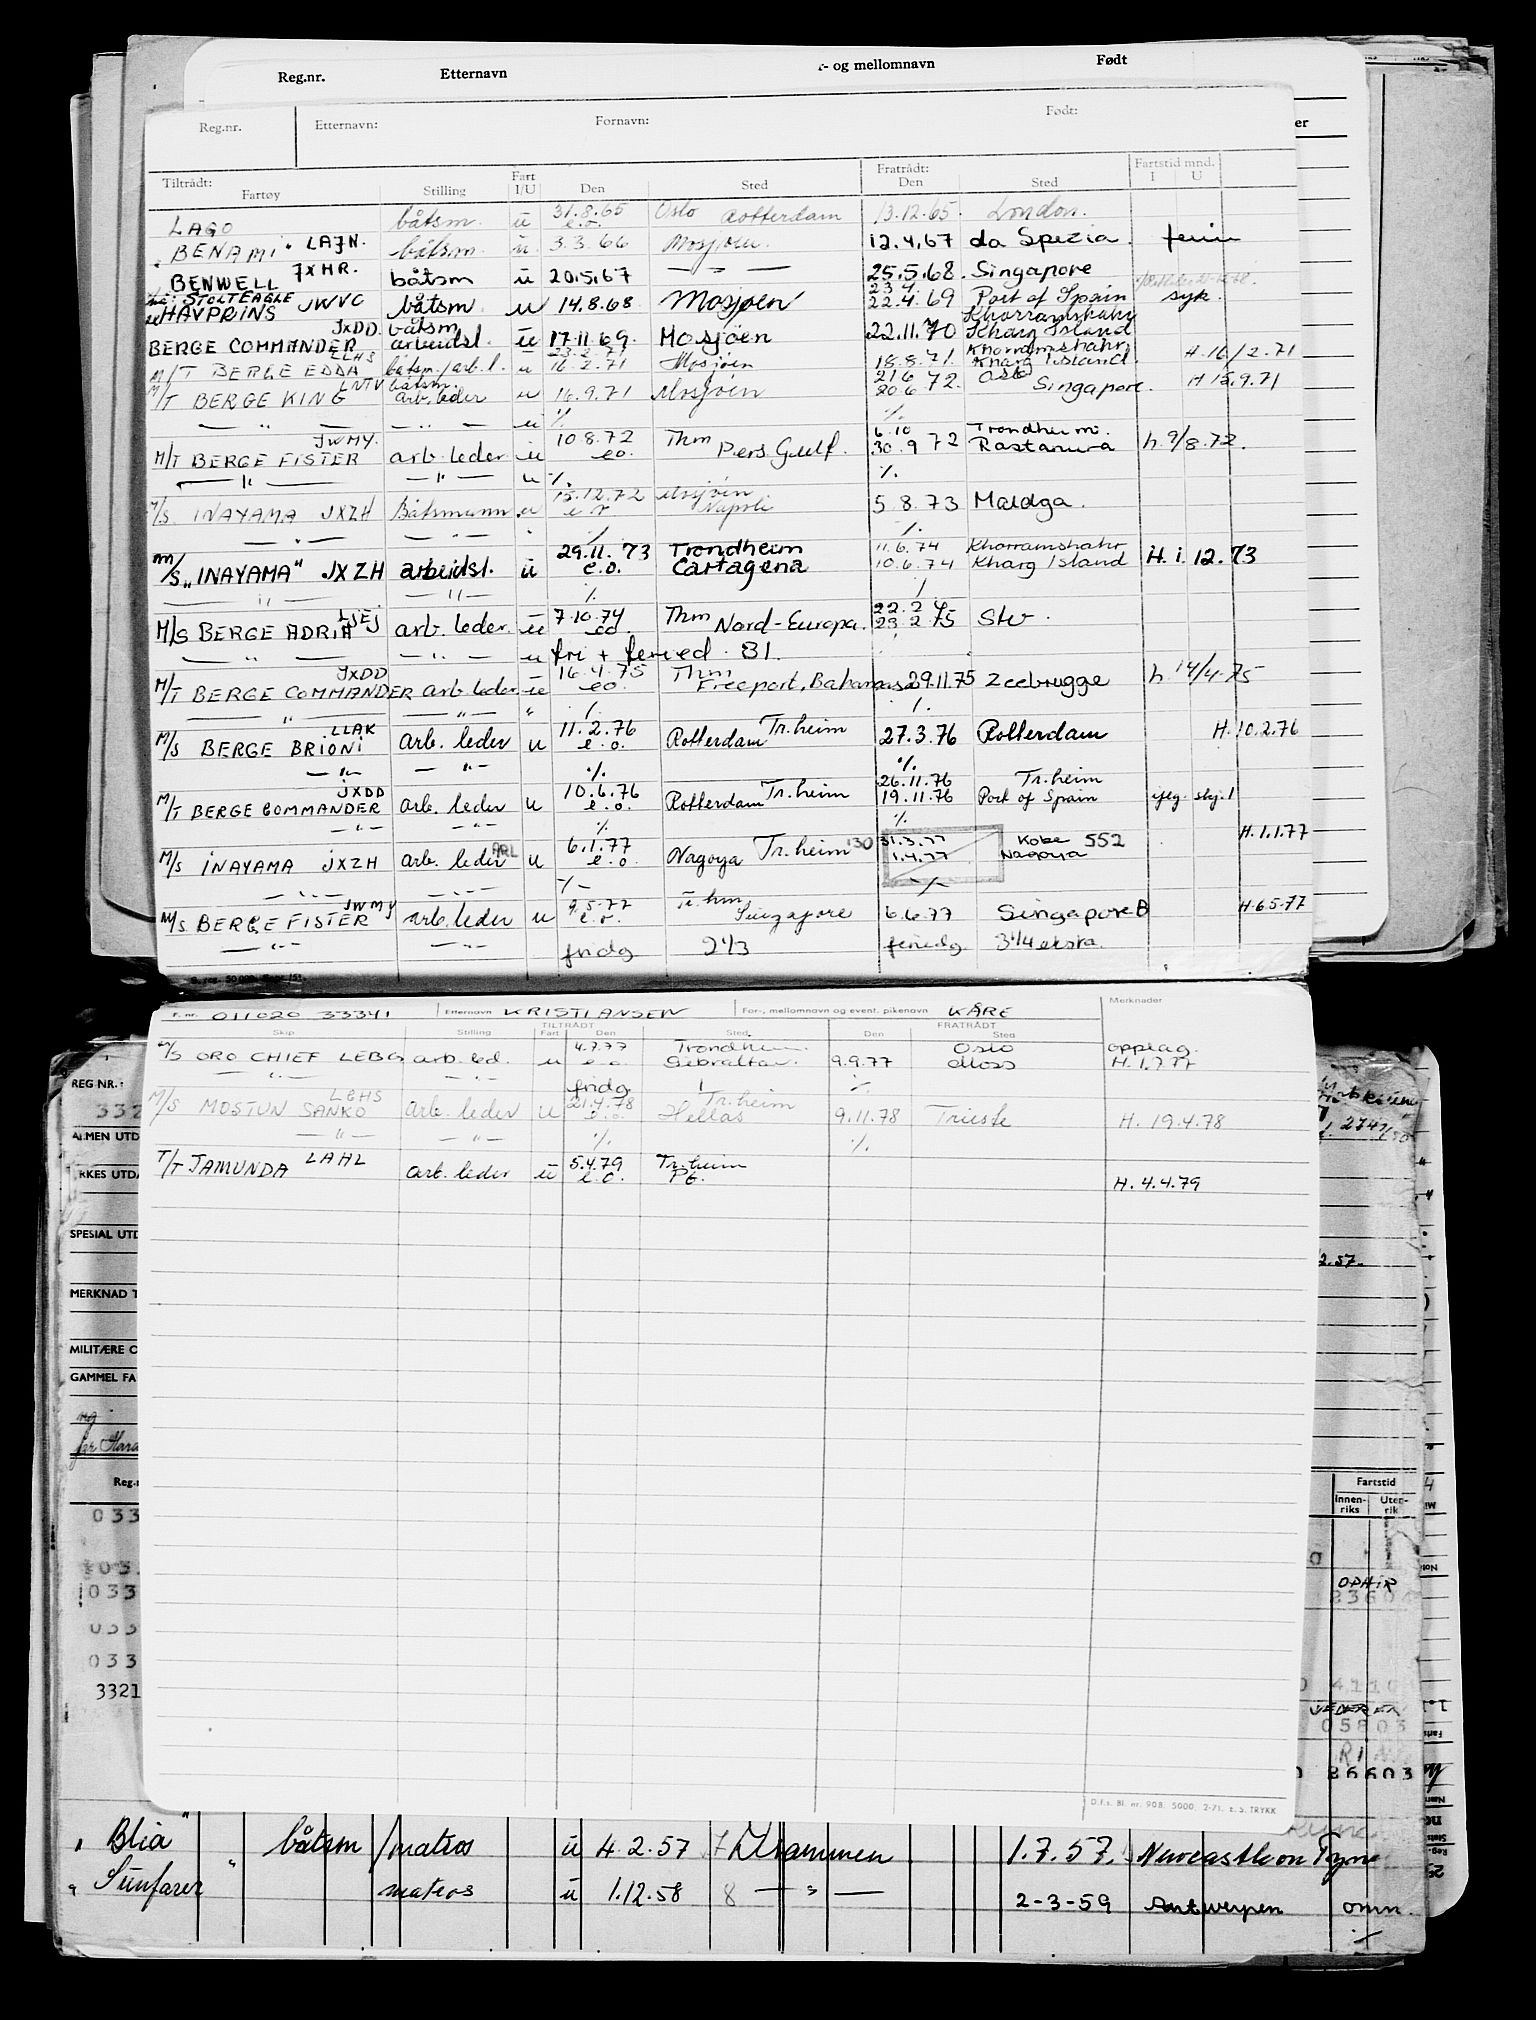 Reg.nr. Etternavn - og mellomnavn Født
Reg.nr. Etternavn: Fornavn: Født:
Tiltrådt: Fratrådt: Fartstid mnd.
Fartøy Stilling Fart I/U Den Sted Den Sted I U
LAGO båtsm. ū 31.8.65 e.o. Oslo Rotterdam 13.12.65. London.
BENAMI LAJN. båtsm. ū. 3.3.66 Mosjøen. 12.4.67 da Spezia. ferie
BENWELL JXHR. båtsm ū 20.5.67 — " — 25.5.68. Singapore
STOLTEAGLE
HAVPRINS JWVC båtsm u 14.8.68 Mosjøen 23.4. 22.4.69 Port of Spain syk.
BERGE COMMANDER JXDD. båtsm arbeidsl. ū 17.11.69. Mosjöen 22.11.70 Khorramshahr Kharg Island
M/T BERGE EDDA LLHS båtsm./arb.l. u 23.2.71 16.2.71 Mosjöen 18.8.71. Khorramshahr Kharg Island. H.16/2.71
M/T BERGE KING LNTV båtsm. arb.leder u 16.9.71 Mosjöen 21.6 20.6 72. Oslo Singapore. H 15.9.71
— " — — " — ū % %
M/T BERGE FISTER JWMY. arb. leder ū 10.8.72 eo. Thm Pers. Gulf. 6.10 30.9 72 Trondheim. Rastanura h. 9/8.72.
— " — — " — u %. %.
M/S INAYAMA JXZH Båtsmann u 15.12.72 e.o Mosjöen Napoli 5.8.73 Malaga.
— " — — " — % %.
M/S "INAYAMA" JXZH arbeidsl. ū 29.11.73 e.o. Trondheim Cartagena 11.6.74 10.6.74 Khorramshahr Kharg Island H. i. 12.73
— " — — " — % %
M/S BERGE ADRIA LJEJ arb. leder. ū 7.10.74 eo. Thm Nord-Europa. 22.2 23.2 75 Stv.
— " — — " — u fri + feried. 81.
M/T BERGE COMMANDER JXDD arb leder ū 16.4.75 eo. Thm Freeport, Bahamas 29.11.75 Zeebrugge h 14/4-75
— " — — " — " % %.
M/S BERGE BRIONI LLAK arb. leder u 11.2.76 e.o. Rotterdam Tr.heim 27.3.76 Rotterdam H.10.2.76
— " — — " — % %
M/T BERGE COMMANDER JXDD arb. leder u 10.6.76 e.o. Rotterdam Tr.heim 26.11.76 19.11.76 Tr.heim Port of Spain
— " — — " — % %
H.1.1.77
M/S INAYAMA JXZH arb. leder ARL u 6.1.77 e.o. Nagoya Tr.heim 130 31.3.77 1.4.77 Kobe 552 Nagoya
— " — — " — % %
M/S BERGE FISTER JWMY arb.leder u 9.5.77 e.o. Tr.hm Singapore 6.6.77 Singapore B H.6.5.77
— " — — " — fridg 2 1/3 feriedg. 3 1/4 ekstra.
F. nr. 011020 33341 Etternavn KRISTIANSEN For-, mellomnavn og event. pikenavn KÅRE Merknader
TILTRÅDT FRATRÅDT
Skip Stilling Fart Den Sted Den Sted
M/S ORO CHIEF LEBG arb. led. u 4.7.77 e.o. Trondheim. Gibraltar. 9.9.77 Oslo Moss opplag. H.1.7.77
— " — — " — fridg 1 %
M/S MOSTUN SANKO LEHS arb. leder u 21.4.78 e.o. Tr.heim Hellas 9.11.78 Trieste H. 19.4.78
— " — — " — % %
T/T JAMUNDA LAHL arb. leder ū 5.4.79 e.o. Tr.heim PG. H. 4.4.79
D.f.s. Bl. nr. 90B. 5000. 2-71. E. S. TRYKK
REG NR.:
332
ALMEN UTD
RKES UTD
SPESIAL UTD
MERKNAD T
MILITÆRE O
GAMMEL FA
Reg.n
033
033
033
3321
2.57.
Fartstid
Innen-riks Uten-rik
OPHIR
23604
05803
86603
Blia " båtsm/matros ū 4.2.57 7 Drammen 1.7.57. Newcastle on Tyne
Sunfarer " matros ū 1.12.58 8 — " — 2-3-59 Antwerpen omm.